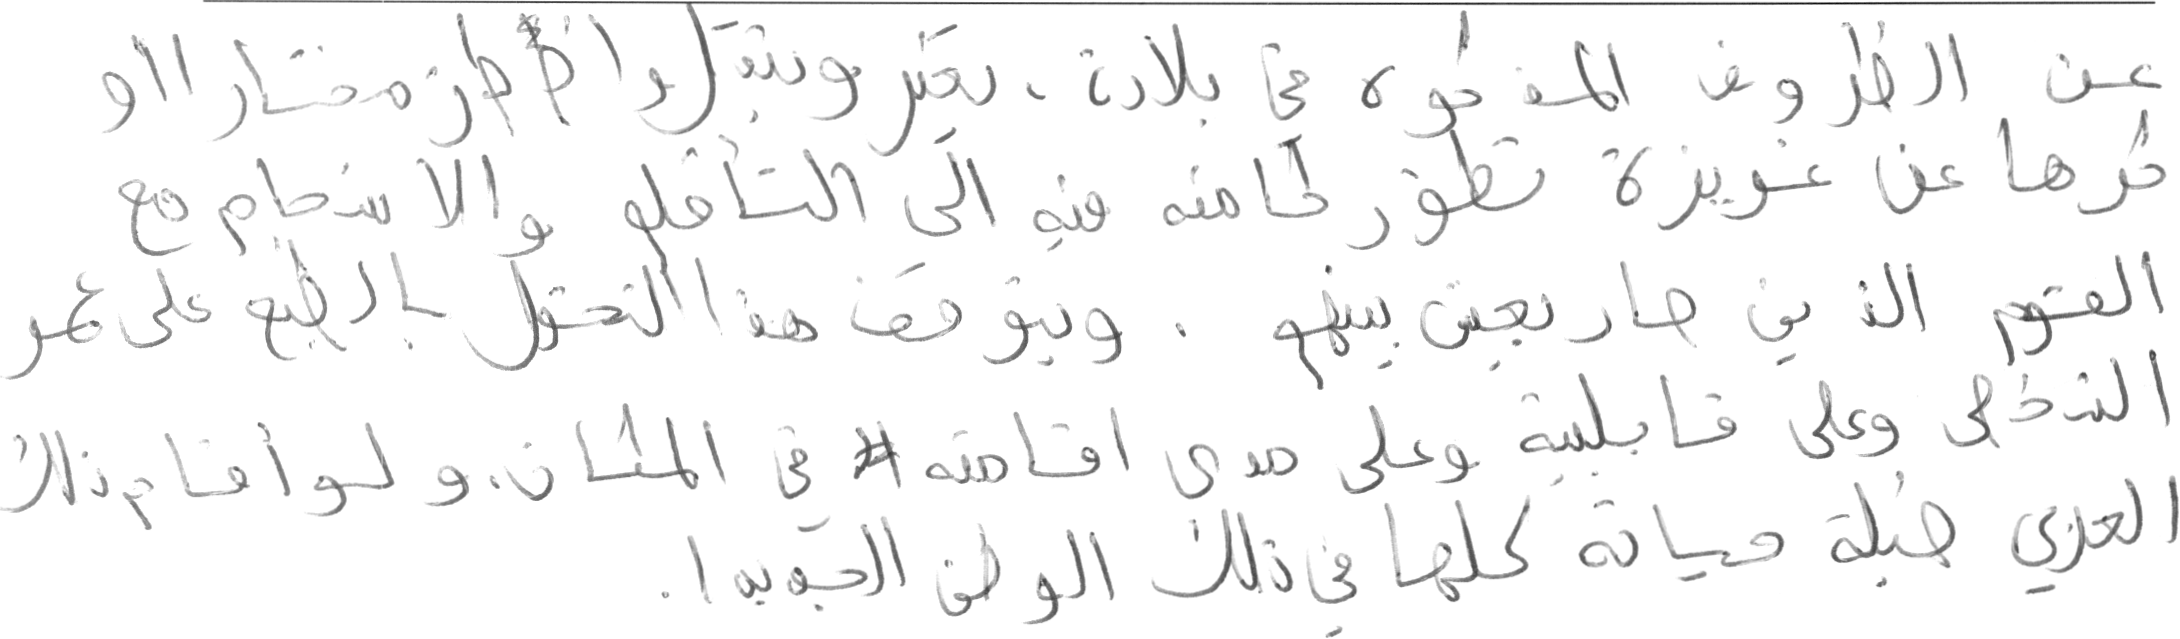 عن الظروف المذكوره في بلادة، تغير وتبدل واخذ طرز مختار او
كرها عن غريزة تطور لحامنه فنه الى التأقلم والانسطام مع
القوم الذين صار يعيش بينهم . ويتوقف هذا التحول بالطبع على عمر
الشخص وعلى قابلية وعلى مدى اقامته في المكان، ولو أقام ذلك
العربي طيلة حياتة كلها في ذلك الوطن الجديد.